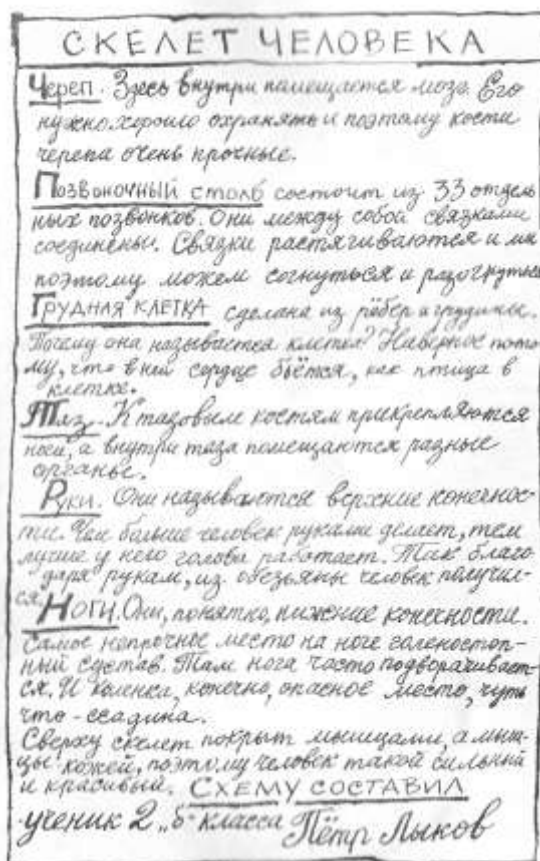 СКЕЛЕТ ЧЕЛОВЕКА
Череп. Здесь внутри помещается мозг. Его
нужно хорошо охранять и поэтому кости
черепа очень прочные.
Позвоночный столб состоит из 33 отдель
ных позвонков. Они между собой связками
соединены. Связки растягиваются и мы
поэтому можем согнуться и разогнуться
Грудная клетка сделана из рёбер и грудины.
Почему она называется клетка? Наверное пото
му, что в ней сердце бьётся, как птица в
клетке.
Таз. К тазовым костям прикрепляются
ноги, а внутри таза помещаются разные
органы.
Руки. Они называются верхние конечнос-
ти. Чем больше человек руками делает, тем
лучше у него голова работает. Так благо
даря рукам, из обезьяны человек получил-
ся. Ноги. Они, понятно, нижние конечности.
Самое непрочное место на ноге голеностоп-
ный сустав. Там нога часто подворачивает-
ся. И коленка, конечно, опасное место, чуть
что - ссадина.
Сверху скелет покрыт мышцами, а мыш-
цы кожей, поэтому человек такой сильный
и красивый. СХЕМУ СОСТАВИЛ
ученик 2 „б" класса Пётр Лыков